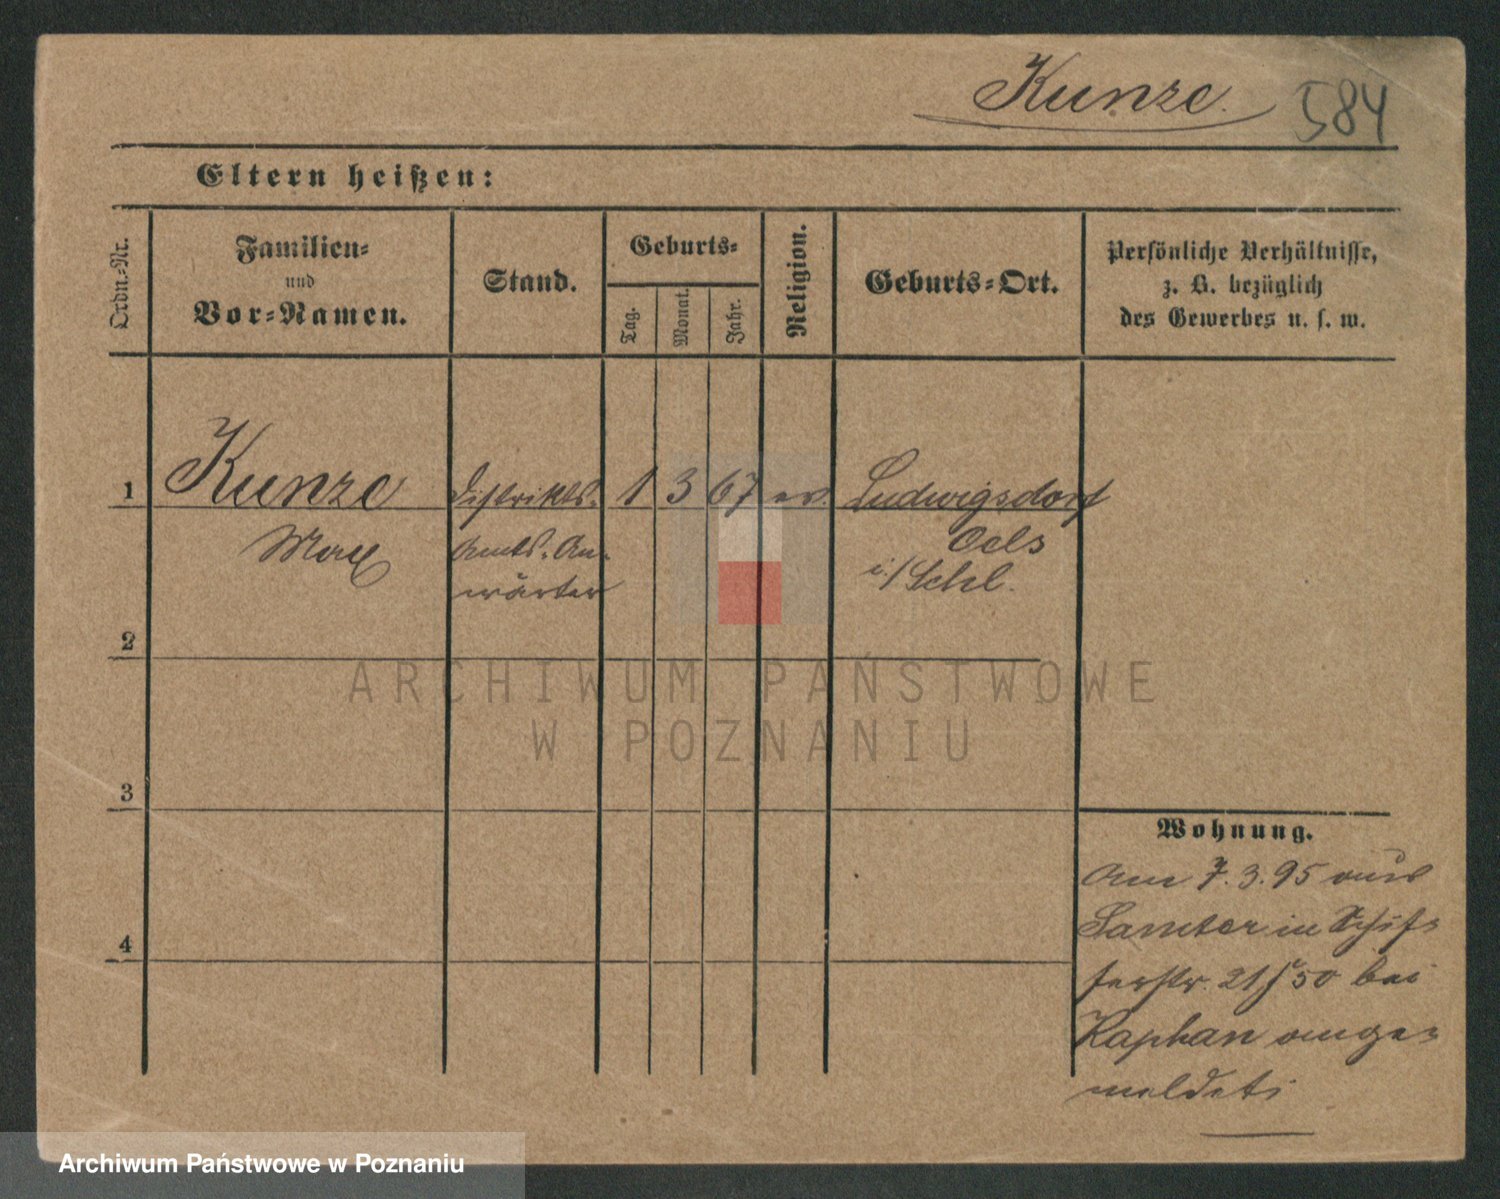 Kunze.
584
Eltern heißen:
Ordn.-Nr.
Familien-
und
Vor-Namen.
Stand.
Geburts-
Tag.
Monat.
Jahr.
Religion.
Geburts-Ort.
Persönliche Verhältnisse,
z. B. bezüglich
des Gewerbes u. s. w.
1
Kunze
Max
Distrikts-
Amts-An-
wärter
1
3
67
ev.
Ludwigsdorf
Oels
i./Schl.
2
3
4
Wohnung.
Am 7.3.95 aus
Samter in Schif-
ferstr. 21 bei
Kaphan ange-
meldet
ARCHIWUM PAŃSTWOWE
W POZNANIU
Archiwum Państwowe w Poznaniu